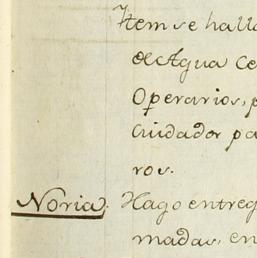 Item se hall
de Agua Ce
Operarios, p
Cuidador pa
ros.
Noria. Hago entreg
madas, en